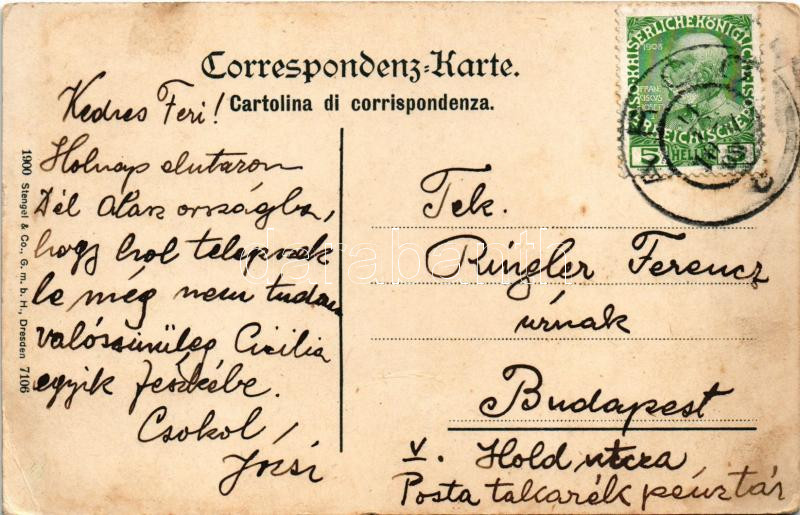 Correspondenz-Karte.
Cartolina di corrispondenza.
Kedves Feri!
Holnap elutazom
Dél Olasz országba,
hogy hol telepszek
le még nem tudom
valószinüleg Cicilia
egyik fészkébe.
Csokol,
Józsi
Tek.
Ringler Ferencz
úrnak
Budapest
V. Hold utcza
Posta takarék pénztár
1900 Stengel & Co., G. m. b. H., Dresden 7106
KAISERLICHEKÖNIGLICHE
1908
FRAN
CISCVS
IOSEF I
5 HELLER 5
darabanth